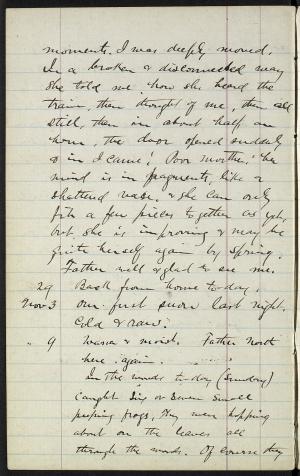 moments. I was deeply moved.
In a broken & disconnected way
she told me how she heard the
train, then thought of me, then all
still, then in about half an
hour, the door opened suddenly
& in I came! Poor mother. her
mind is in fragments, like a
shattered vase. & she can only
fit a few pieces together as yet,
but she is improving & may be
quite herself again by spring.
Father well & glad to see me.
29 Back from home to-day.
Nov 3 Our first snow last night.
Cold & raw.
" 9 Warm & moist. Father North
here again.
In the woods to-day (Sunday)
caught six or seven small
peeping frogs. They were hopping
about on the leaves all
through the woods. Of course they